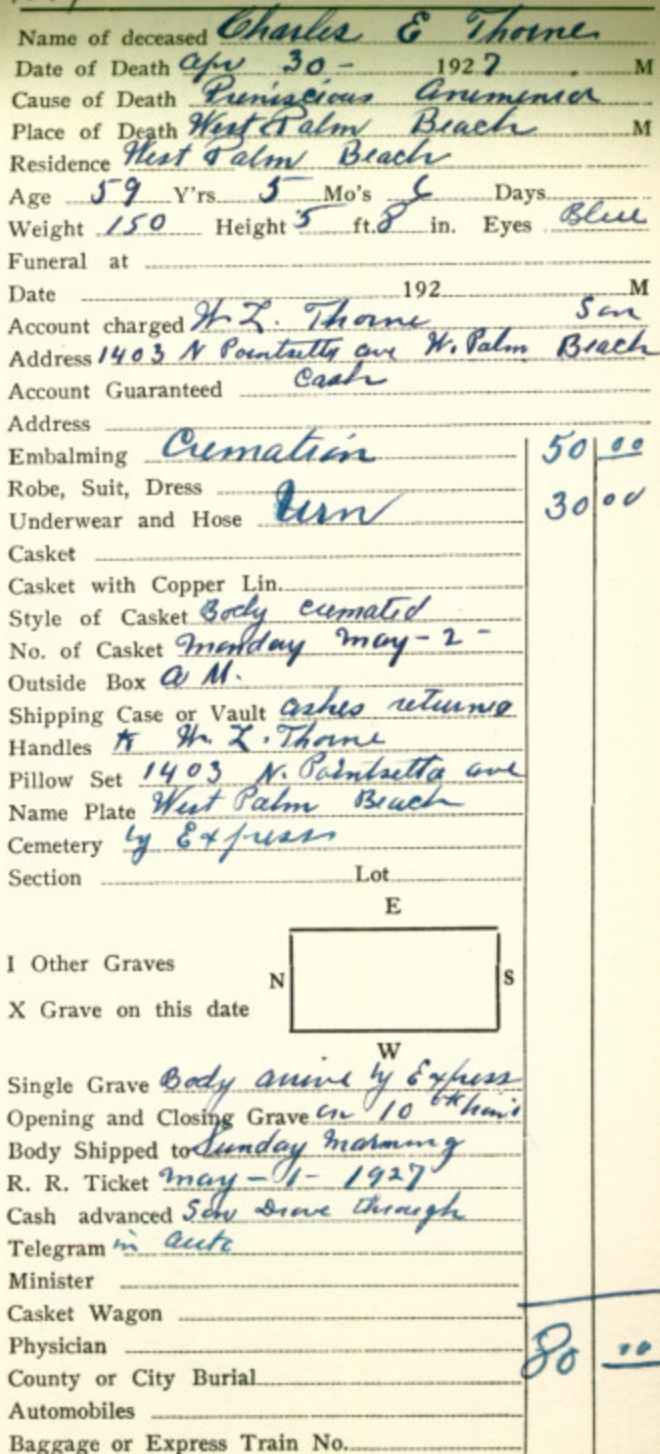 Name of deceased Charles E Thorne
Date of Death Apr 30 - 1927 M
Cause of Death Preniscious Anemenia
Place of Death West Palm Beach M
Residence West Palm Beach
Age 59 Y'rs 5 Mo's 6 Days
Weight 150 Height 5 ft. 8 in. Eyes Blue
Funeral at
Date 192 M
Account charged W. L. Thorne Son
Address 1403 N Pointsetta ave W. Palm Beach
Account Guaranteed Cash
Address
Embalming Cremation 50 00
Robe, Suit, Dress
Underwear and Hose Urn 30 00
Casket
Casket with Copper Lin.
Style of Casket Body cremated
No. of Casket Monday May - 2 -
Outside Box A M.
Shipping Case or Vault ashes returned
Handles to W. L. Thorne
Pillow Set 1403 N. Pointsetta ave
Name Plate West Palm Beach
Cemetery by Express
Section Lot
E
I Other Graves
N S
X Grave on this date
W
Single Grave Body arrive by Express
Opening and Closing Grave on 10
Body Shipped to Sunday Morning
R. R. Ticket May - 1 - 1927
Cash advanced Son Drove through
Telegram in auto
Minister
Casket Wagon
Physician 80 00
County or City Burial
Automobiles
Baggage or Express Train No.